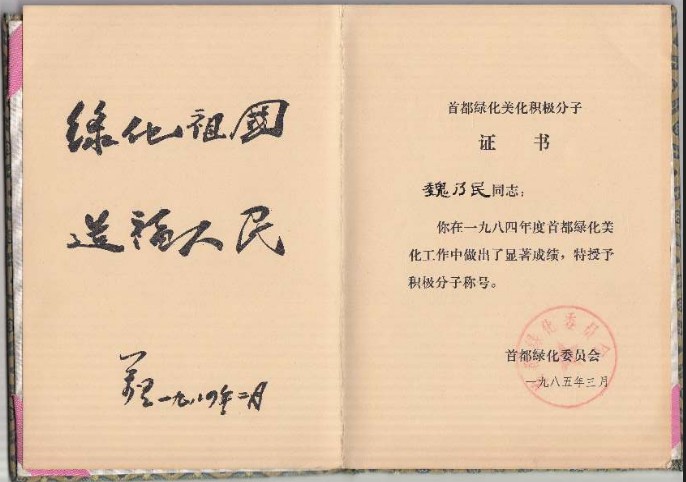 绿化祖國
造福人民
万里一九八四年二月
首都绿化美化积极分子
证 书
魏乃民同志：
你在一九八四年度首都绿化美
化工作中做出了显著成绩，特授予
积极分子称号。
首都绿化委员会
一九八五年三月
首都绿化委员会